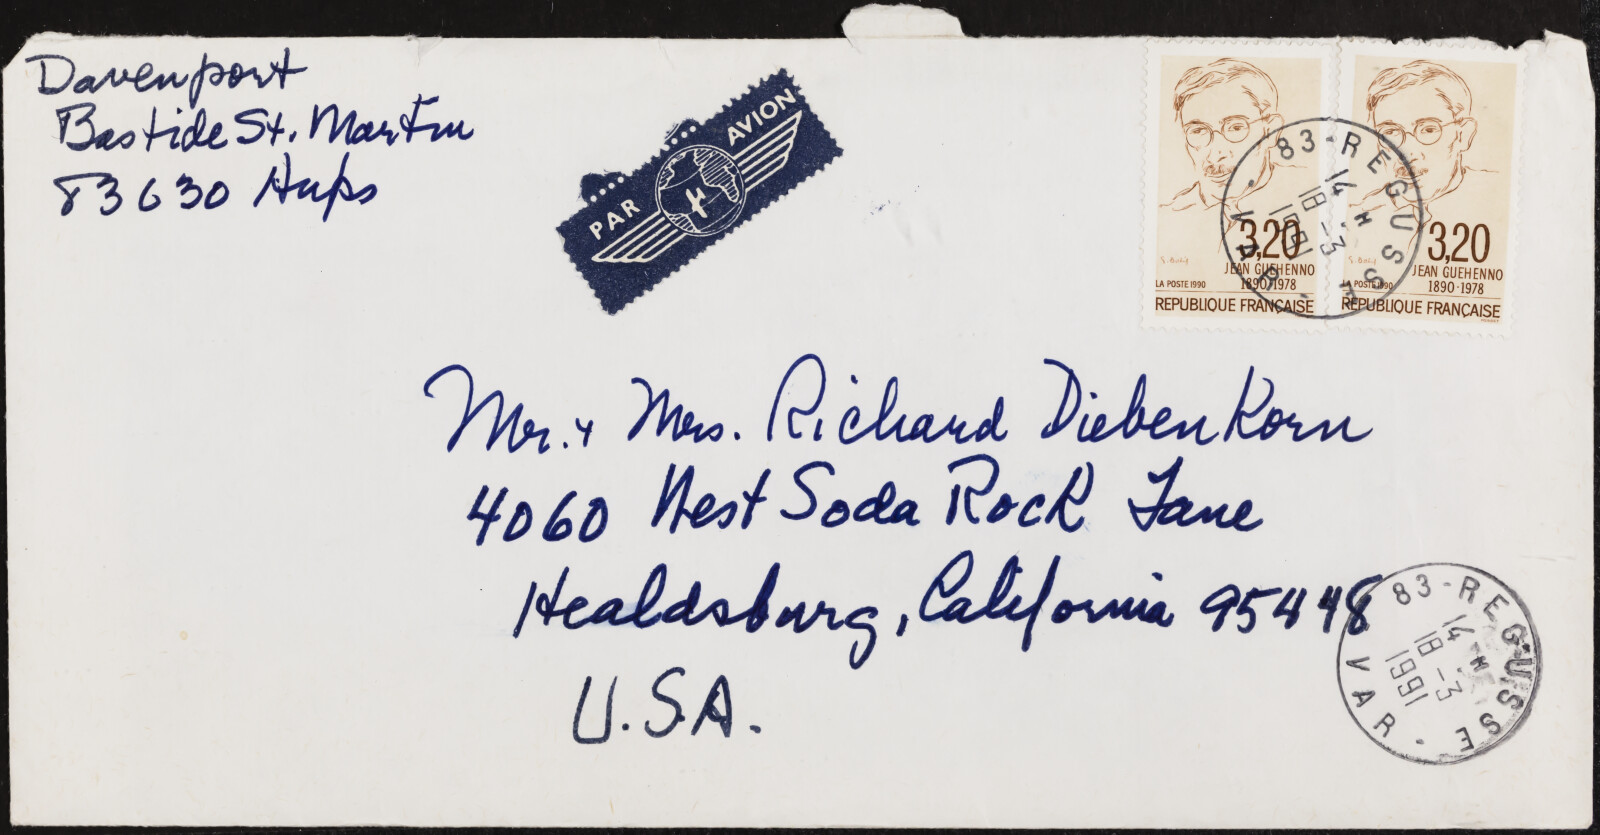 Davenport
Bastide St. Martin
83630 Aups
PAR AVION
3,20
JEAN GUEHENNO
LA POSTE 1990 1890-1978
REPUBLIQUE FRANÇAISE
3,20
JEAN GUEHENNO
LA POSTE 1990 1890-1978
REPUBLIQUE FRANÇAISE
83-REGUSSE
14 H
18-3
1991
VAR
Mr. & Mrs. Richard Diebenkorn
4060 West Soda Rock Lane
Healdsburg, California 95448
U.S.A.
83-REGUSSE
14 H
18-3
1991
VAR